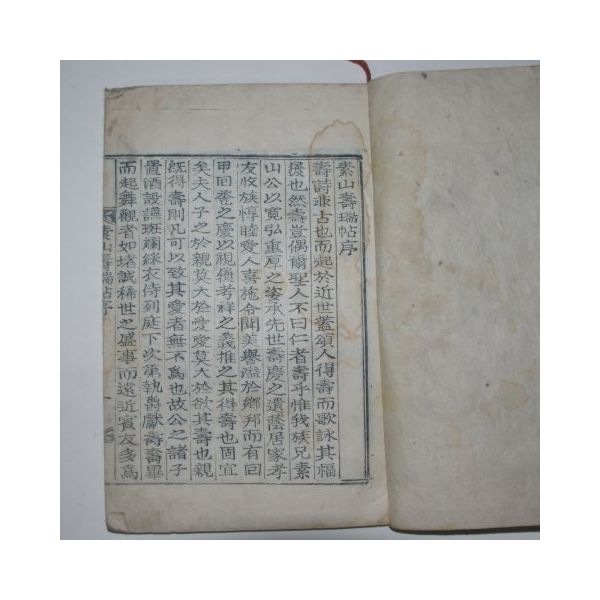 素山壽瑞帖序
壽詩非古也而起於近世蓋頌人得壽而歌詠其福
履也然壽豈偶爾聖人不曰仁者壽乎惟我族兄素
山公以寬弘重厚之姿承先世壽慶之遺蔭居家孝
友收族惇睦愛人喜施令聞美譽溢於鄉邦而有回
甲回巹之慶以視履考祥之義推之其得壽也固宜
矣夫人子之於親莫大於愛愛莫大於欲其壽也親
旣得壽則凡可以致其愛者無不爲也故公之諸子
置酒設讌斑斕綵衣侍列庭下次第執爵獻壽壽畢
而起舞觀者如堵誠稀世之盛事而遠近賓友多爲
素山壽瑞帖序
一